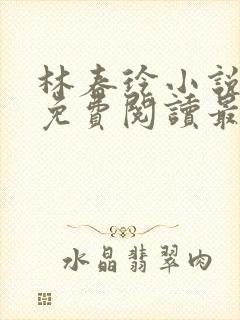 林春徐小說
免費閱讀最
水晶翡翠肉